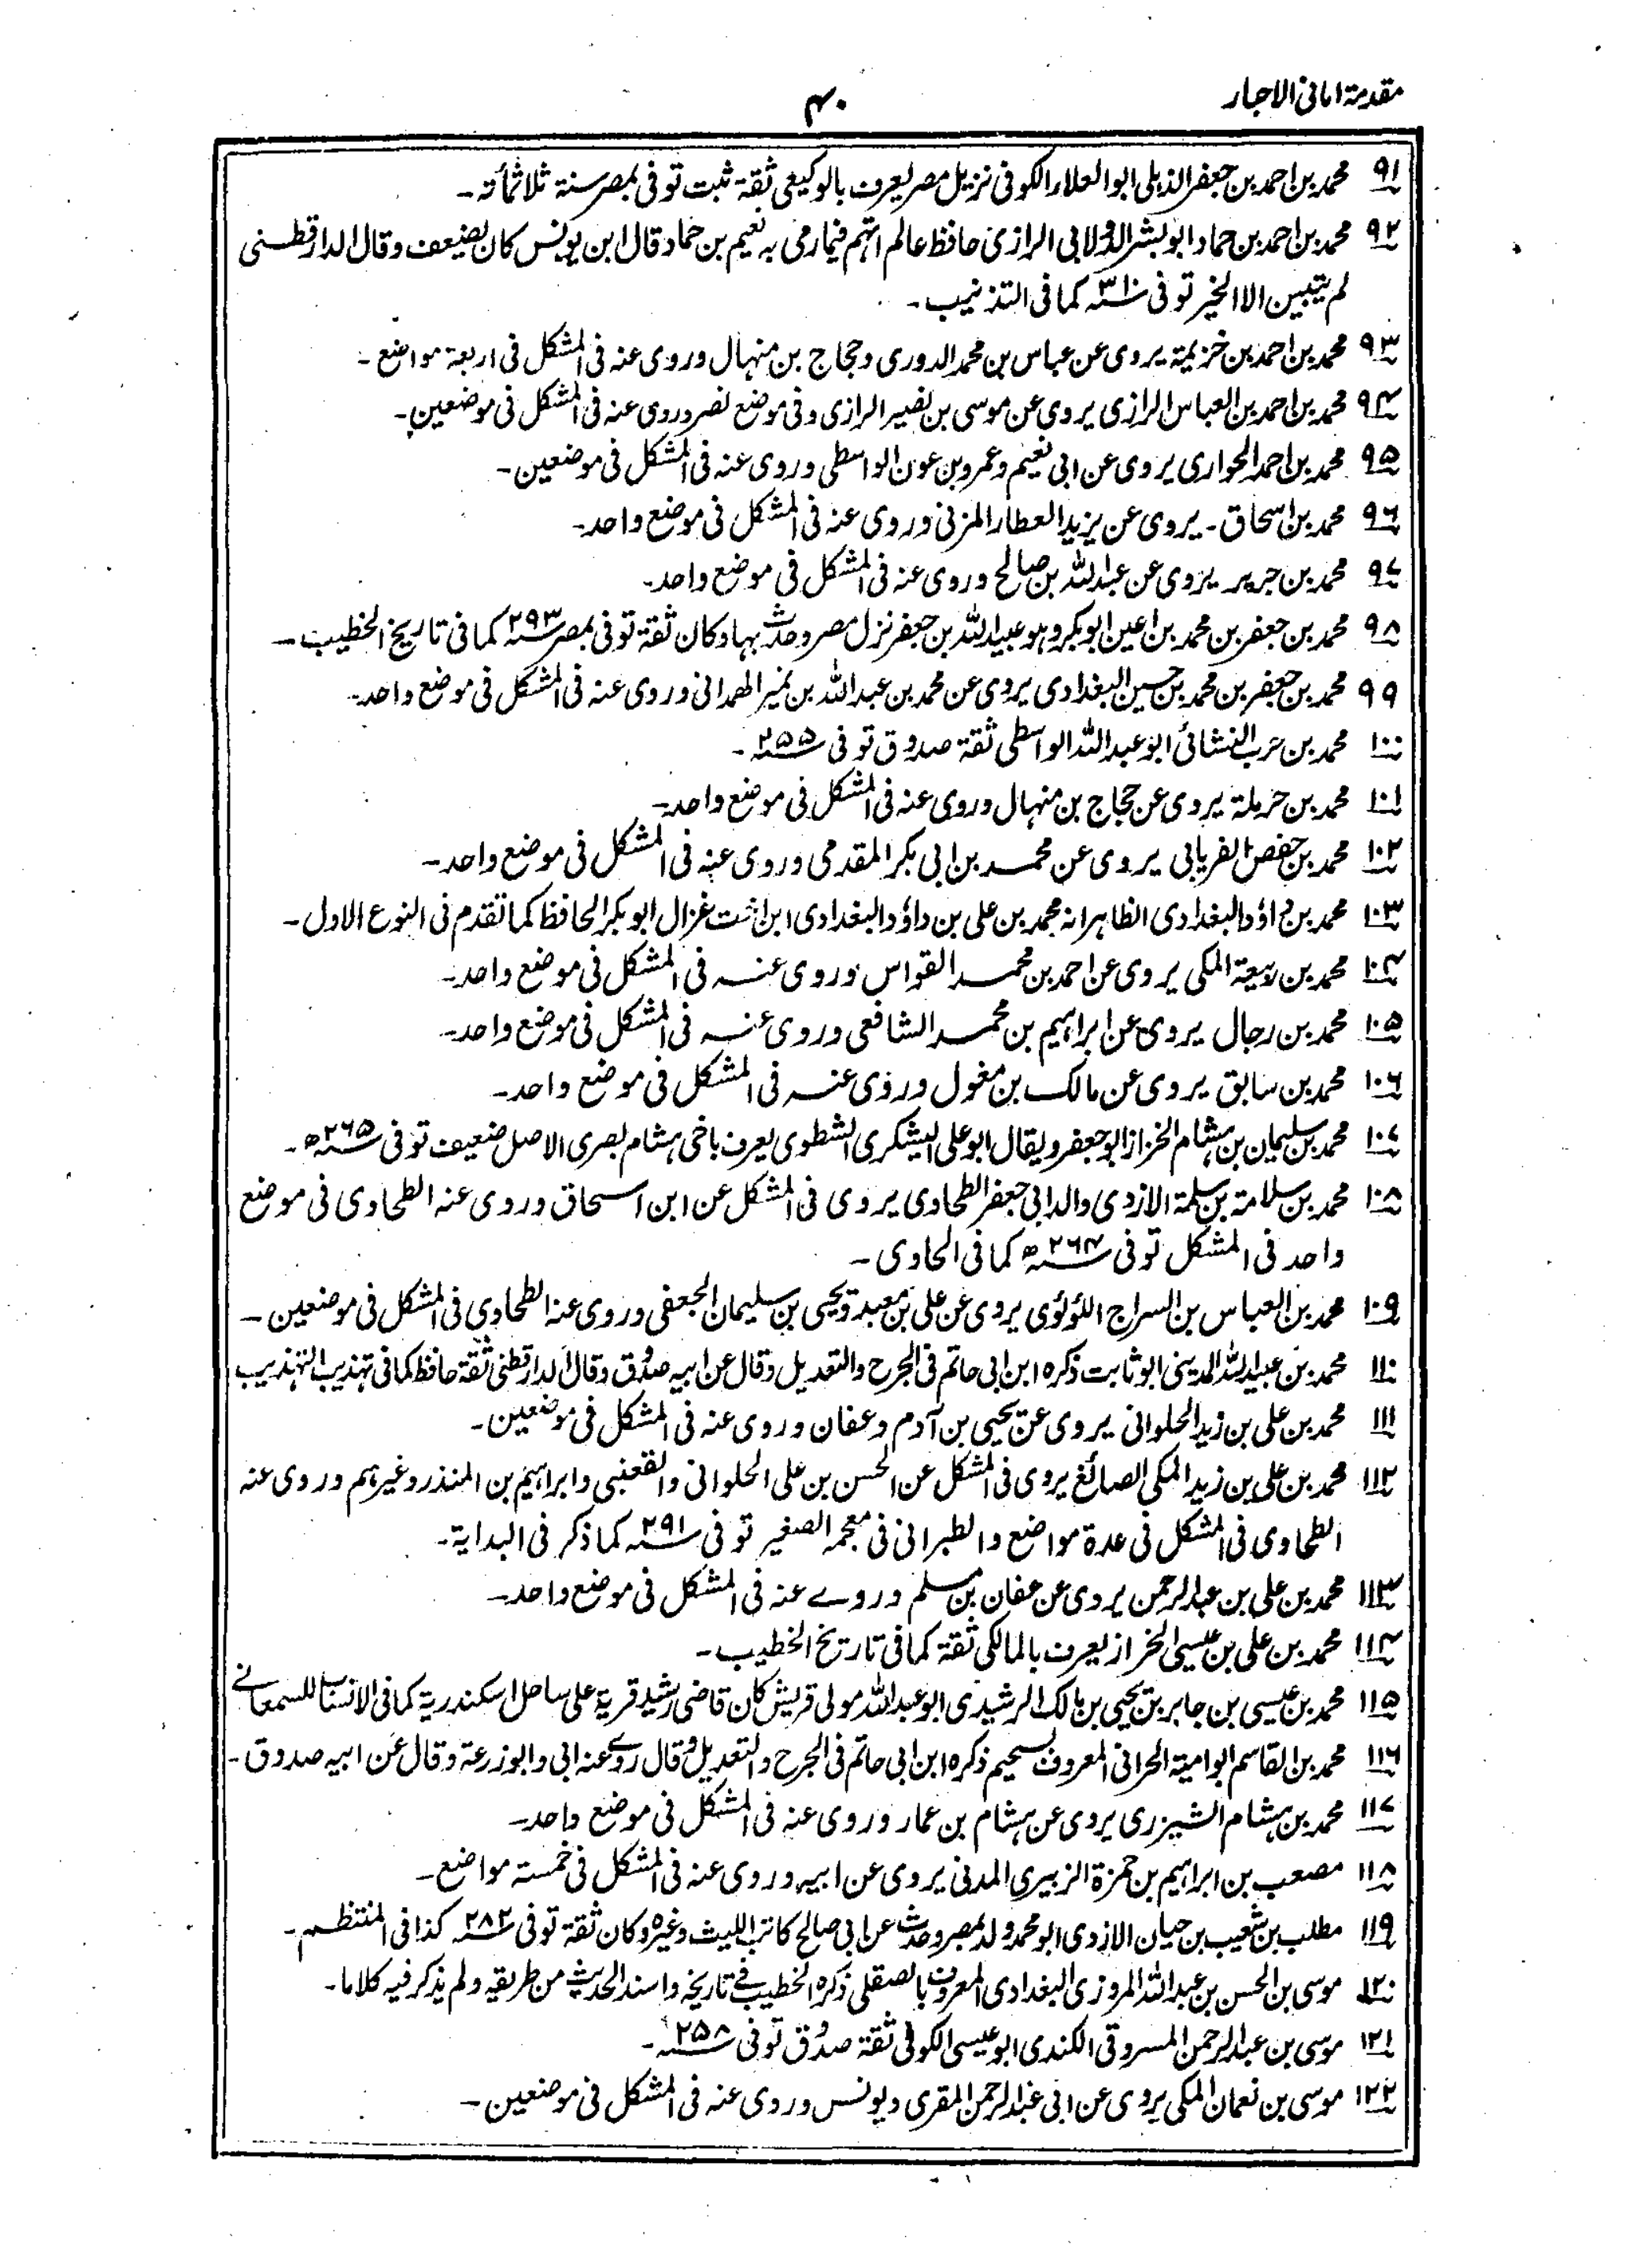 مقدمة امانى الاحبار
۴۰
۹۱ محمد بن احمد بن جعفر الذہلى ابو العلاء الكوفى نزيل مصر يعرف بالوكيعى ثقة ثبت توفى بمصر سنة ثلاثمأته ـ
۹۲ محمد بن احمد بن حماد ابو بشر الدولابى الرازى حافظ عالم اتهم فيما رمى به نعيم بن حماد قال ابن يونس كان يضيعف وقال الدارقطنى
لم يتبين الا الخير توفى سنہ ۳۱۰ كما فى التذنيب ـ
۹۳ محمد بن احمد بن خزيمة يروى عن عباس بن محمد الدورى وحجاج بن منهال وروى عنه فى المشكل فى اربعة مواضع ـ
۹۴ محمد بن احمد بن العباس الرازى يروى عن موسى بن نصير الرازى وفى موضع نصر وروى عنه فى المشكل فى موضعين ـ
۹۵ محمد بن احمد الجوارى يروى عن ابى نعيم وعمرو بن عون الواسطى وروى عنه فى المشكل فى موضعين ـ
۹۶ محمد بن اسحاق ـ يروى عن يزيد العطار المزنى وروى عنه فى المشكل فى موضع واحد ـ
۹۷ محمد بن جرير يروى عن عبد الله بن صالح وروى عنه فى المشكل فى موضع واحد ـ
۹۸ محمد بن جعفر بن محمد بن اعين ابو بكر وہو عبيد الله بن جعفر نزل مصر وحدث بہا وكان ثقة توفى بمصر سنہ ۲۹۳ كما فى تاريخ الخطيب ـ
۹۹ محمد بن جعفر بن محمد بن حسين البغدادى يروى عن محمد بن عبد الله بن نمير الهمدانى وروى عنه فى المشكل فى موضع واحد ـ
۱۰۰ محمد بن حرب النشائى ابو عبد الله الواسطى ثقة صدوق توفى سنہ ۲۵۵ ـ
۱۰۱ محمد بن حرملة يروى عن حجاج بن منهال وروى عنه فى المشكل فى موضع واحد ـ
۱۰۲ محمد بن حفص الفريابى يروى عن محمد بن ابى بكر المقدمى وروى عنه فى المشكل فى موضع واحد ـ
۱۰۳ محمد بن داؤد البغدادى الظاہر انه محمد بن على بن داؤد البغدادى ابن اخت غزال ابو بكر الحافظ كما تقدم فى النوع الاول ـ
۱۰۴ محمد بن ربيعة المكى يروى عن احمد بن محمد القواس وروى عنه فى المشكل فى موضع واحد ـ
۱۰۵ محمد بن رجال يروى عن ابراہيم بن محمد الشافعى وروى عنه فى المشكل فى موضع واحد ـ
۱۰۶ محمد بن سابق يروى عن مالك بن مغول وروى عنه فى المشكل فى موضع واحد ـ
۱۰۷ محمد بن سليمان بن ہشام الخزاز ابو جعفر ويقال ابو على اليشكرى الشطوى يعرف باخى ہشام بصرى الاصل ضعيف توفى سنہ ۲۶۵ھ ـ
۱۰۸ محمد بن سلامة بن سلمة الازدى والد ابى جعفر الطحاوى يروى فى المشكل عن ابن اسحاق وروى عنه الطحاوى فى موضع
واحد فى المشكل توفى سنہ ۲۶۴ھ كما فى الحاوى ـ
۱۰۹ محمد بن العباس بن السراج اللؤلؤى يروى عن على بن معبد ويحيى بن سليمان الجعفى وروى عنه الطحاوى فى المشكل فى موضعين ـ
۱۱۰ محمد بن عبيد الله المدينى ابو ثابت ذكره ابن ابى حاتم فى الجرح والتعديل وقال عن ابيه صدوق وقال الدارقطنى ثقة حافظ كما فى تہذيب التہذيب
۱۱۱ محمد بن على بن زيد الحلوانى يروى عن يحيى بن آدم وعفان وروى عنه فى المشكل فى موضعين ـ
۱۱۲ محمد بن على بن زيد المكى الصائغ يروى فى المشكل عن الحسن بن على الحلوانى والقعنبى وابراہيم بن المنذر وغيرہم وروى عنه
الطحاوى فى المشكل فى عدة مواضع والطبرانى فى معجمه الصغير توفى سنہ ۲۹۱ كما ذكر فى البداية ـ
۱۱۳ محمد بن على بن عبد الرحمن يروى عن عفان بن مسلم وروے عنه فى المشكل فى موضع واحد ـ
۱۱۴ محمد بن على بن عيسى الخراز يعرف بالمالكى ثقة كما فى تاريخ الخطيب ـ
۱۱۵ محمد بن عيسى بن جابر بن يحيى بن مالك الرشيدى ابو عبد الله مولى قريش كان قاضى رشيد قرية على ساحل اسكندرية كما فى الانساب للسمعانے
۱۱۶ محمد بن القاسم ابو امية الحرانى المعروف بسحيم ذكره ابن ابى حاتم فى الجرح والتعديل وقال روے عنه ابى وابو زرعة وقال عن ابيه صدوق ـ
۱۱۷ محمد بن ہشام الشيزرى يروى عن ہشام بن عمار وروى عنه فى المشكل فى موضع واحد ـ
۱۱۸ مصعب بن ابراہيم بن حمزة الزبيرى المدنى يروى عن ابيه وروى عنه فى المشكل فى خمسة مواضع ـ
۱۱۹ مطلب بن شعيب بن حيان الازدى ابو محمد ولد بمصر وحدث عن ابى صالح كاتب الليث وغيره وكان ثقة توفى سنہ ۲۸۲ كذا فى المنتظم ـ
۱۲۰ موسى بن الحسن بن عبد الله المروزى البغدادى المعروف بالصقلى ذكره الخطيب فے تاريخه واسند الحديث من طريقه ولم يذكر فيه كلاما ـ
۱۲۱ موسى بن عبد الرحمن المسروقى الكندى ابو عيسى الكوفى ثقة صدوق توفى سنہ ۲۵۸ ـ
۱۲۲ موسى بن نعمان المكى يروى عن ابى عبد الرحمن المقرى ويونس وروى عنه فى المشكل فى موضعين ـ